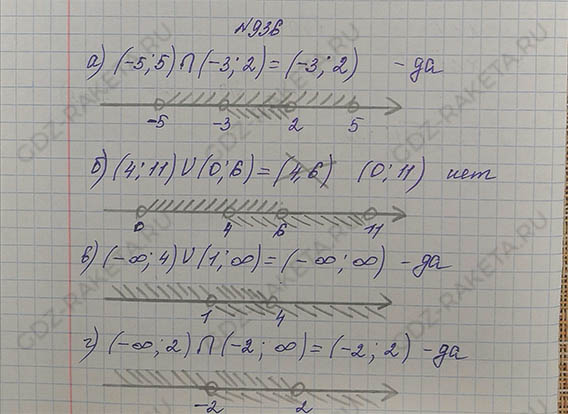 №936
а) (-5; 5) ∩ (-3; 2) = (-3; 2) - да
-5 -3 2 5
б) (4; 11) ∪ (0; 6) = (4, 6) (0; 11) нет
0 4 6 11
в) (-∞; 4) ∪ (1; ∞) = (-∞; ∞) - да
1 4
г) (-∞; 2) ∩ (-2; ∞) = (-2; 2) - да
-2 2
GDZ-RAKETA.RU
GDZ-RAKETA.RU
GDZ-RAKETA.RU
GDZ-RAKETA.RU